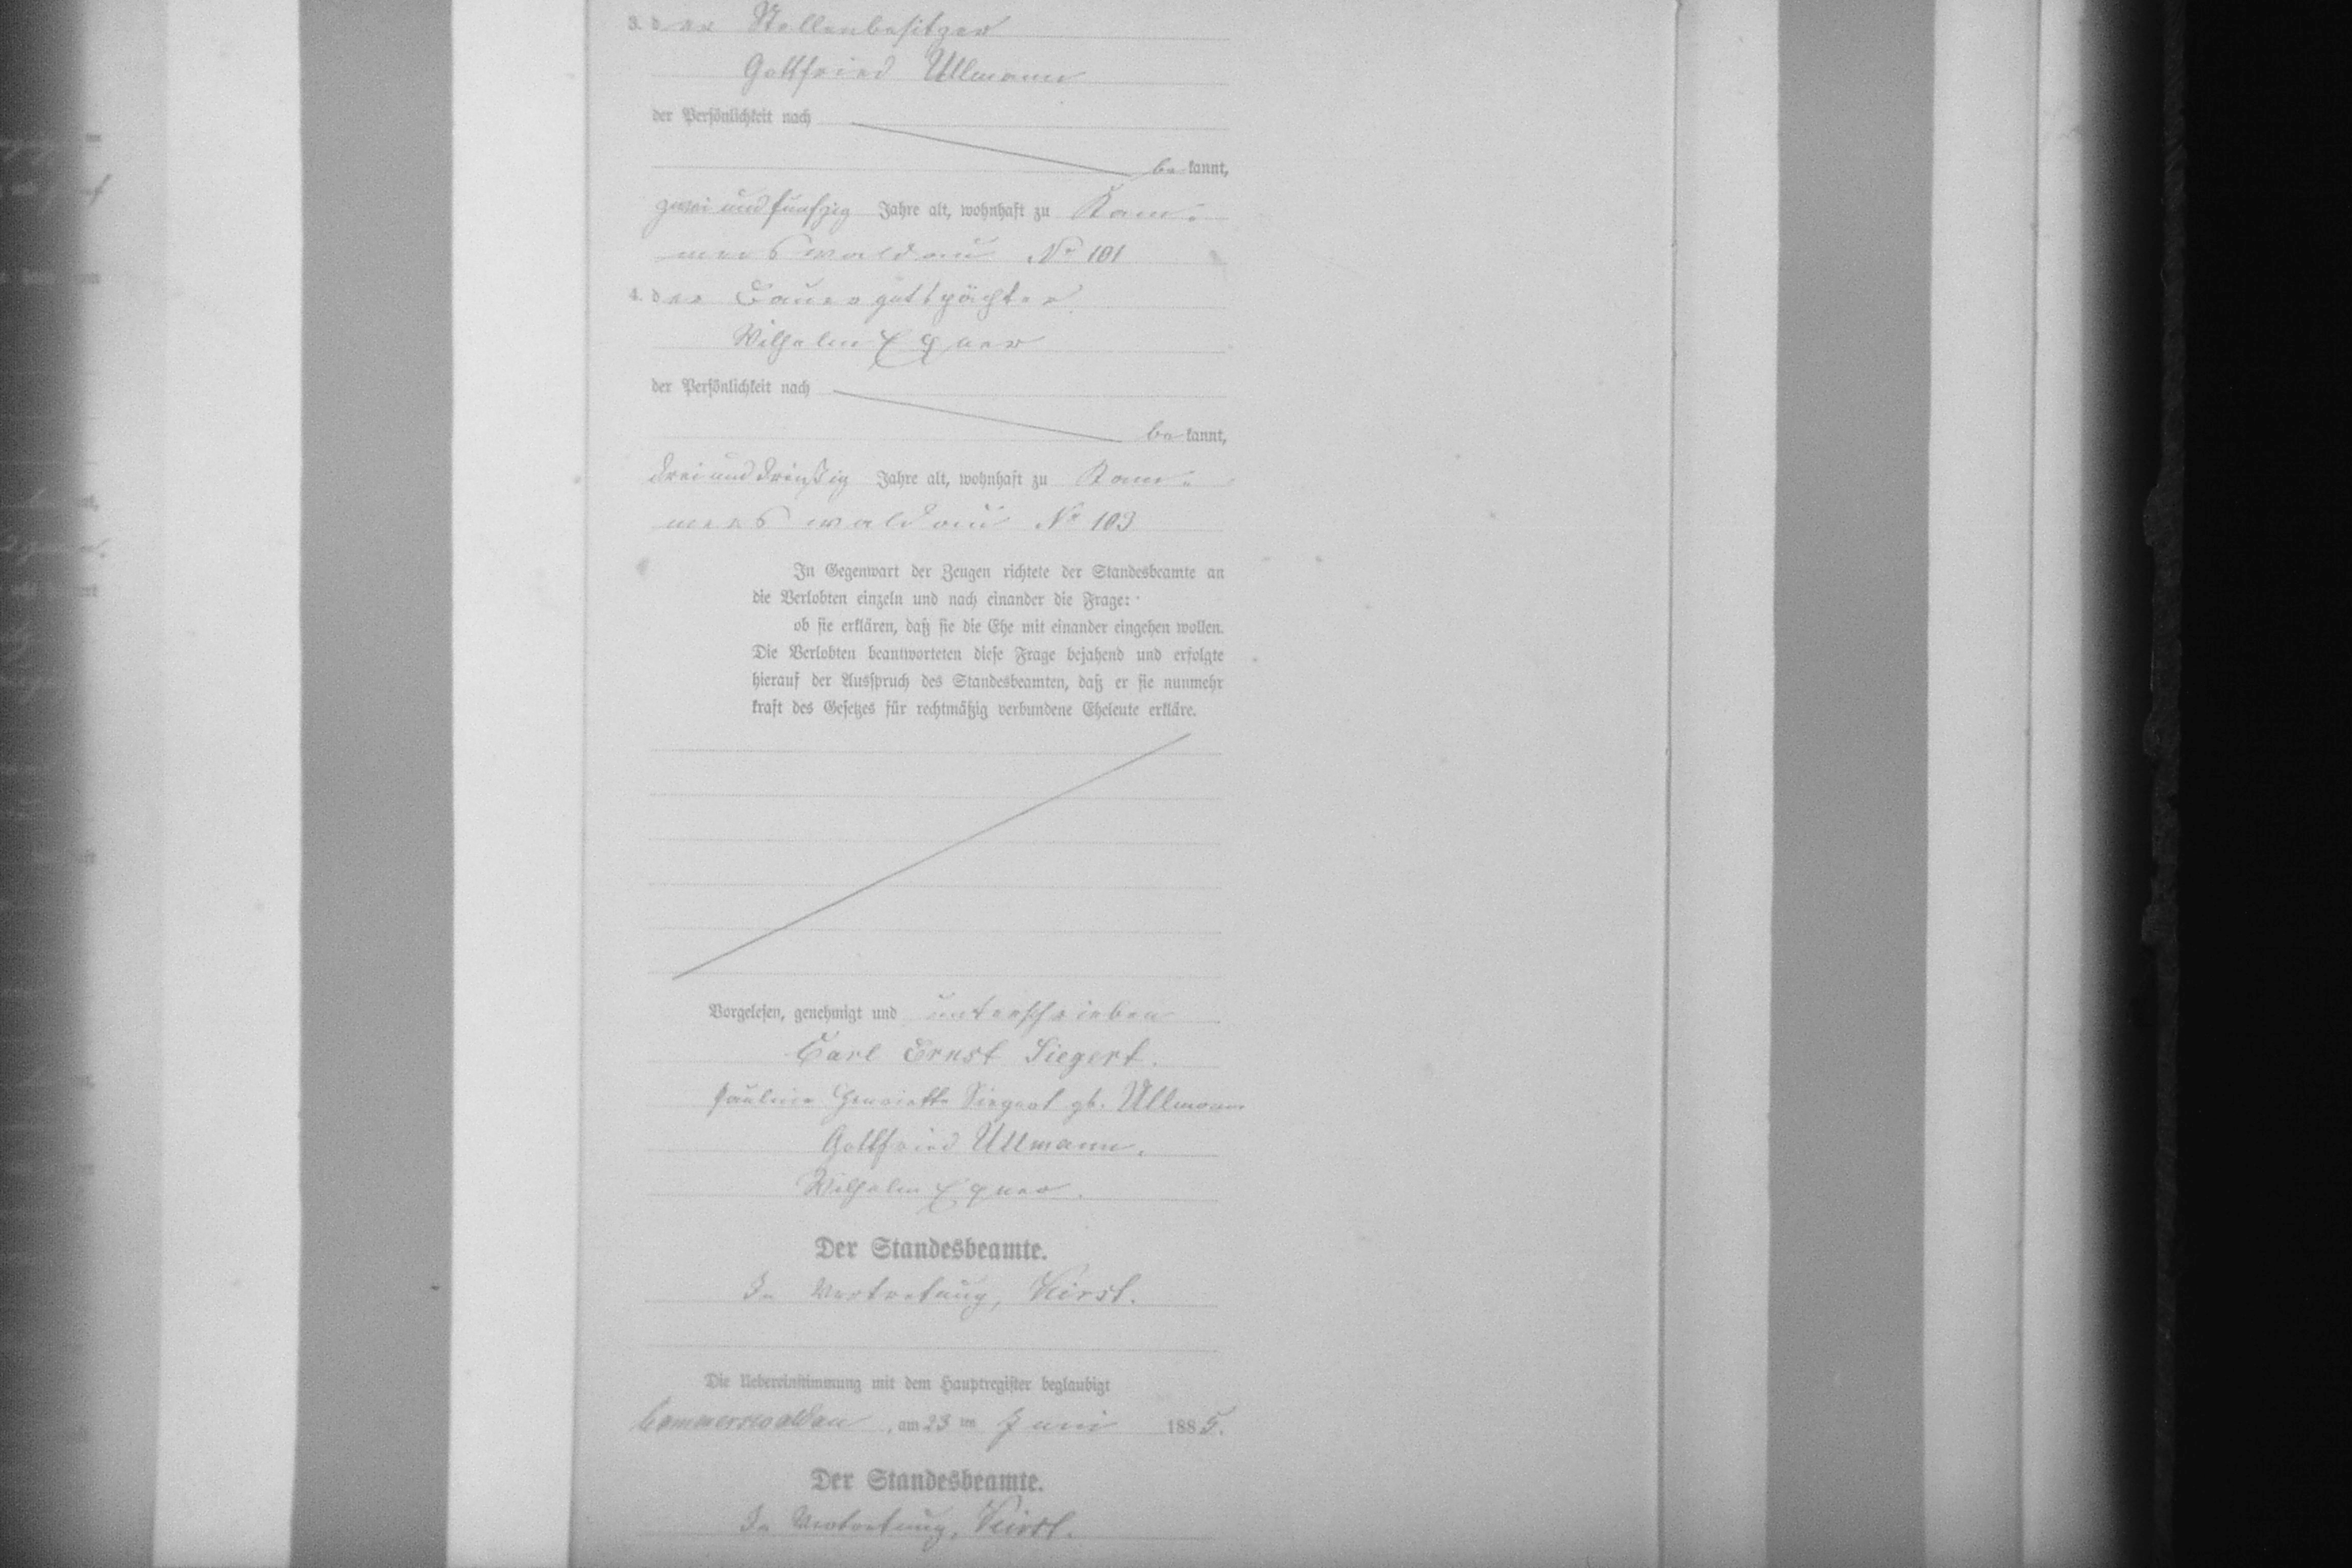 3. der Stellenbesitzer
Gottfried Ullmann
der Persönlichkeit nach
be kannt,
zwei und funfzig Jahre alt, wohnhaft zu Kam-
merswaldau No 101
4. der Bauergutspächter
Wilhelm Exner
der Persönlichkeit nach
be kannt,
drei und dreißig Jahre alt, wohnhaft zu Kam-
merswaldau No 103
In Gegenwart der Zeugen richtete der Standesbeamte an
die Verlobten einzeln und nach einander die Frage:
ob sie erklären, daß sie die Ehe mit einander eingehen wollen.
Die Verlobten beantworteten diese Frage bejahend und erfolgte
hierauf der Ausspruch des Standesbeamten, daß er sie nunmehr
kraft des Gesetzes für rechtmäßig verbundene Eheleute erkläre.
Vorgelesen, genehmigt und unterschrieben
Carl Ernst Siegert.
Pauline Henriette Siegert gb. Ullmann
Gottfried Ullmann.
Wilhelm Exner.
Der Standesbeamte.
In Vertretung, Keirst.
Die Uebereinstimmung mit dem Hauptregister beglaubigt
Cammerswaldau, am 23 ten Juni 1885.
Der Standesbeamte.
In Vertretung, Keirst.